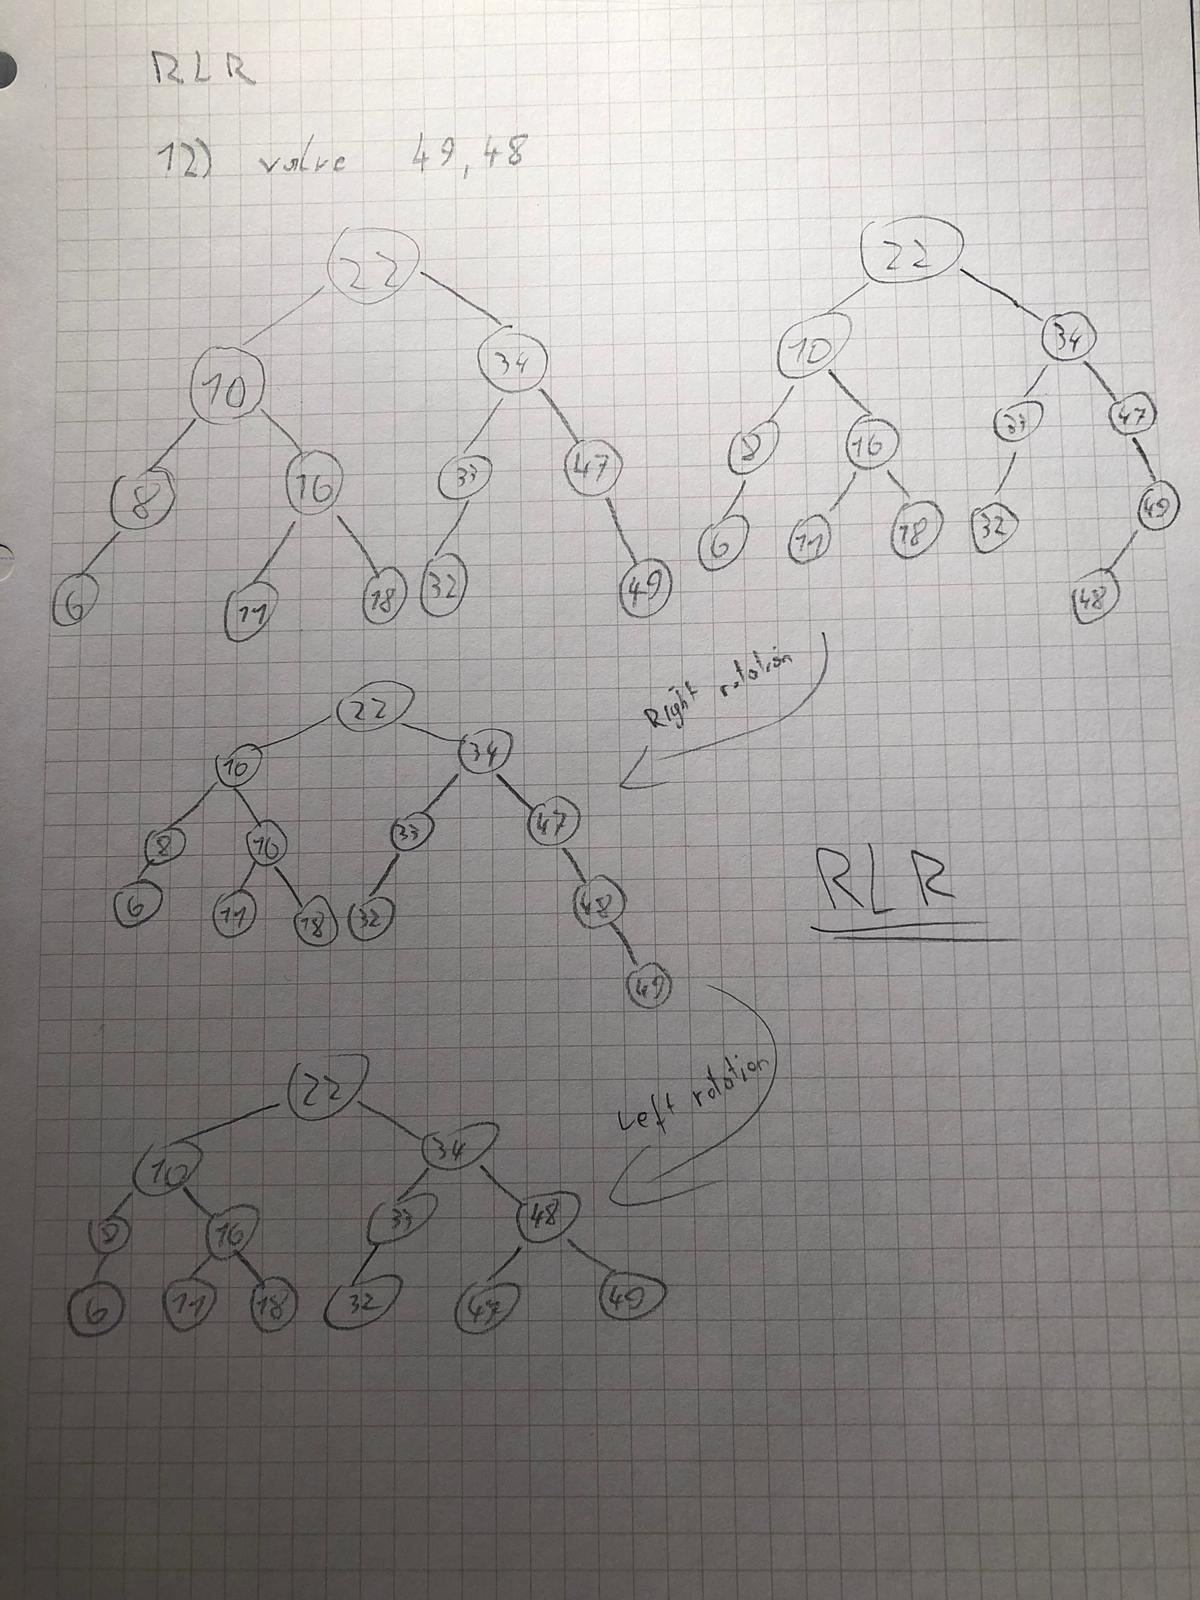 RLR
12) value 49, 48
22
22
10
34
10
34
8
16
33
47
8
16
33
47
6
11
18
32
49
6
11
18
32
49
48
Right rotation
22
10
34
8
16
33
47
6
11
18
32
48
49
RLR
Left rotation
22
10
34
8
16
33
48
6
11
18
32
47
49